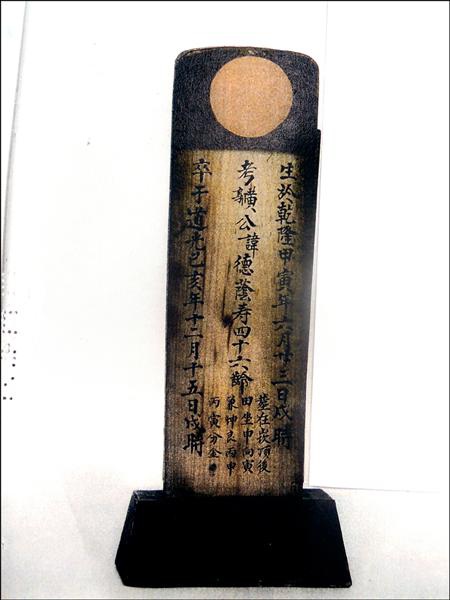 生扵乾隆甲寅年六月廿三日戌時
考公諱德蔭寿四十六齡
塟在崁頂後
田坐申向寅
兼坤艮丙申
丙寅分金
卒于道光己亥年十二月十五日戌時